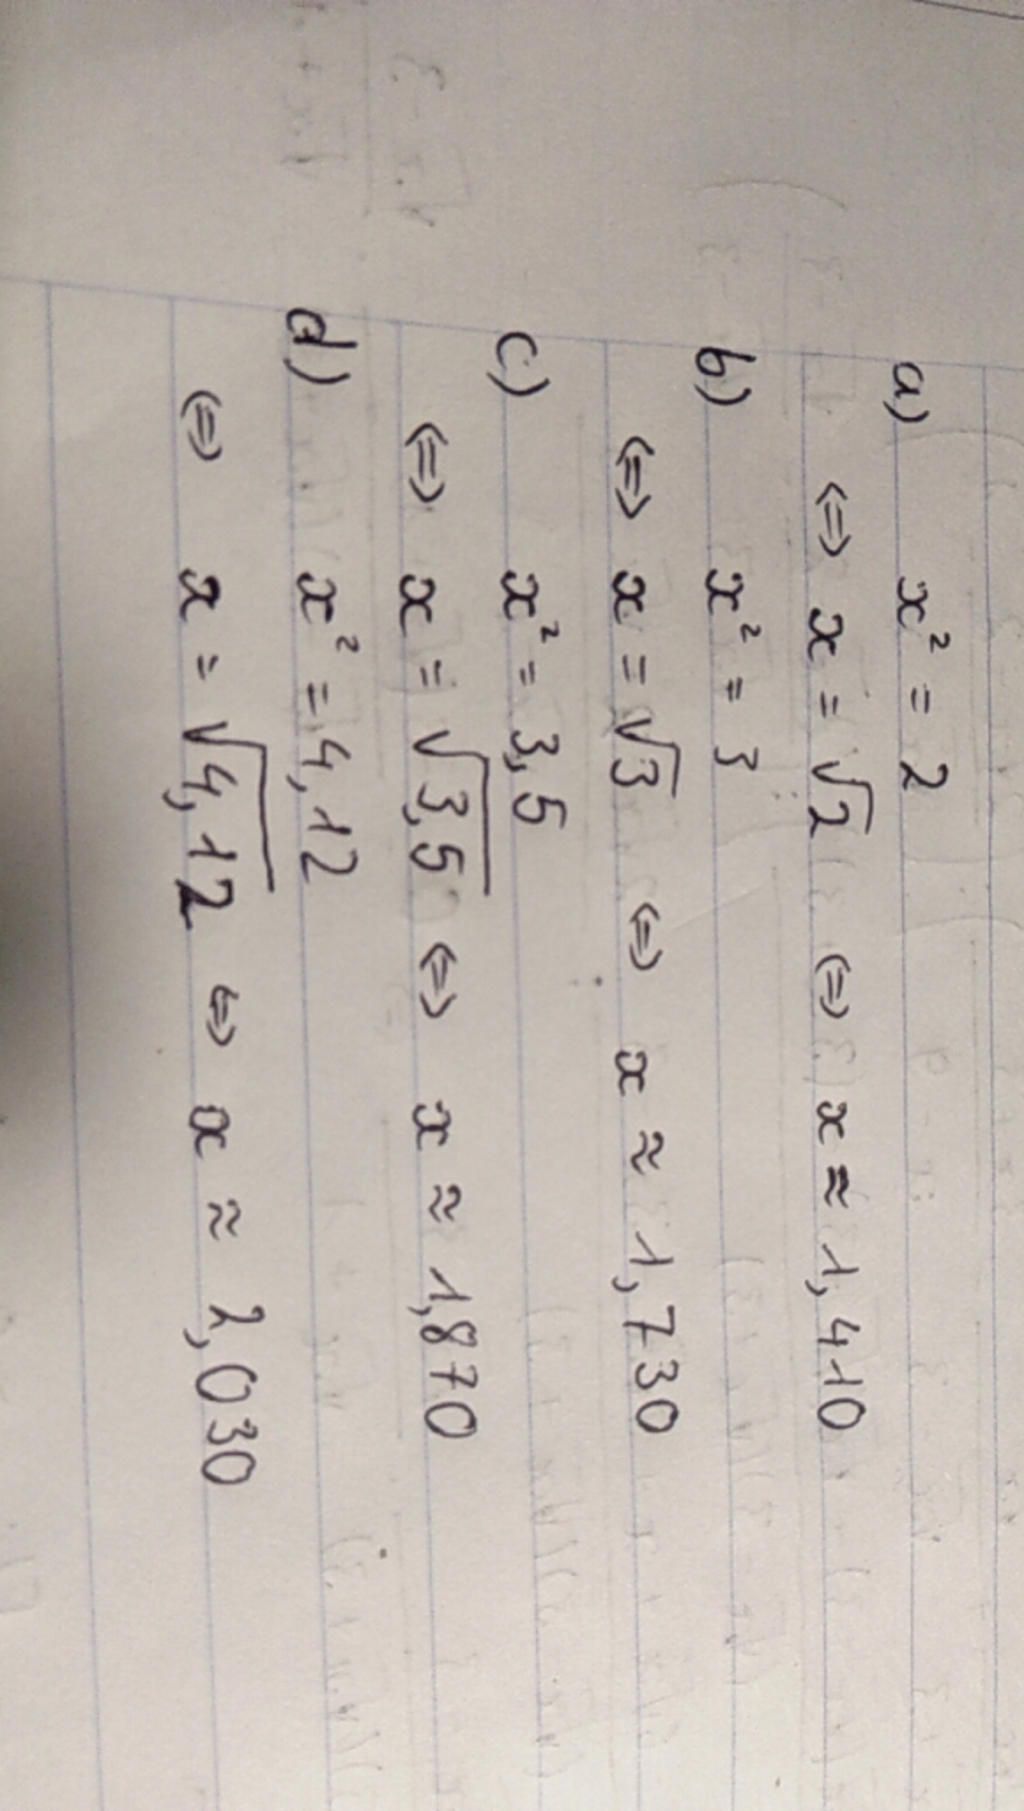 a) x² = 2
⇔ x = √2 ⇔ x ≈ 1,410
b) x² = 3
⇔ x = √3 ⇔ x ≈ 1,730
c) x² = 3,5
⇔ x = √3,5 ⇔ x ≈ 1,870
d) x² = 4,12
⇔ x = √4,12 ⇔ x ≈ 2,030